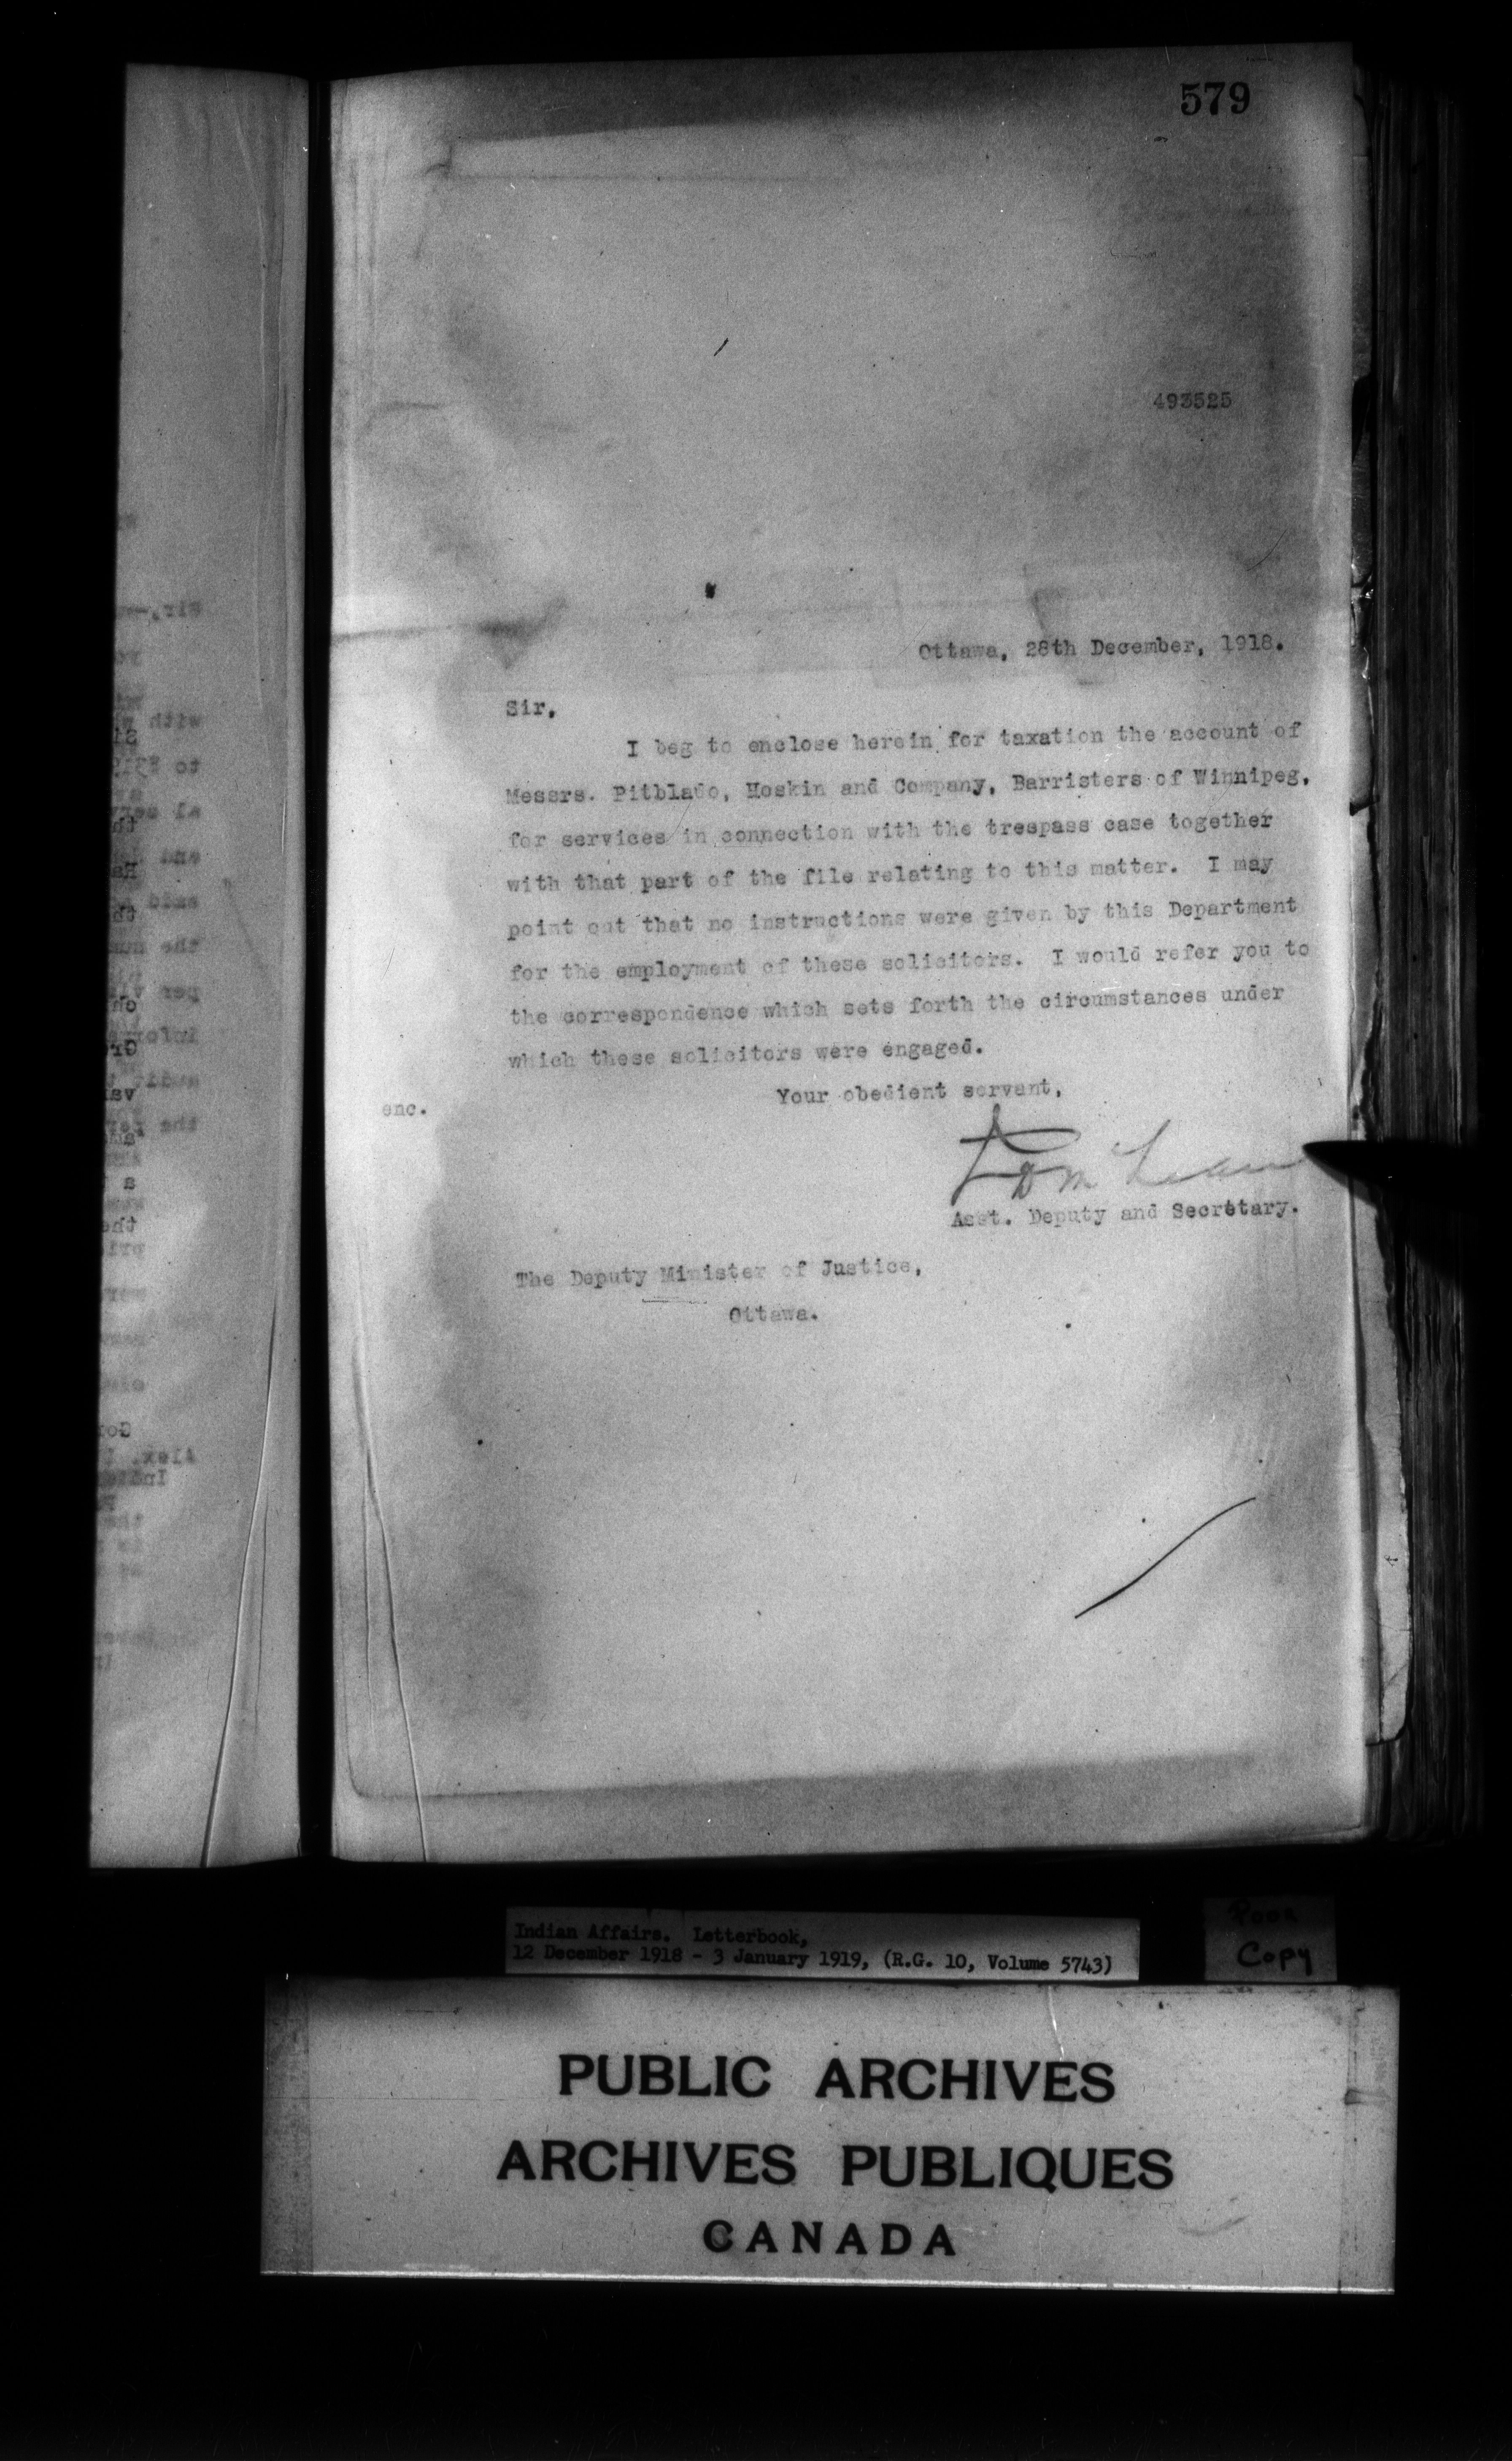 579
493525
Ottawa, 28th December, 1918.
Sir,
I beg to enclose herein for taxation the account of
Messrs. Pitblado, Hoskin and Company, Barristers of Winnipeg,
for services in connection with the trespass case together
with that part of the file relating to this matter. I may
point out that no instructions were given by this Department
for the employment of these solicitors. I would refer you to
the correspondence which sets forth the circumstances under
which these solicitors were engaged.
Your obedient servant,
enc.
Asst. Deputy and Secretary.
The Deputy Minister of Justice,
Ottawa.
Indian Affairs. Letterbook,
12 December 1918 - 3 January 1919, (R.G. 10, Volume 5743)
Poor
Copy
PUBLIC ARCHIVES
ARCHIVES PUBLIQUES
CANADA